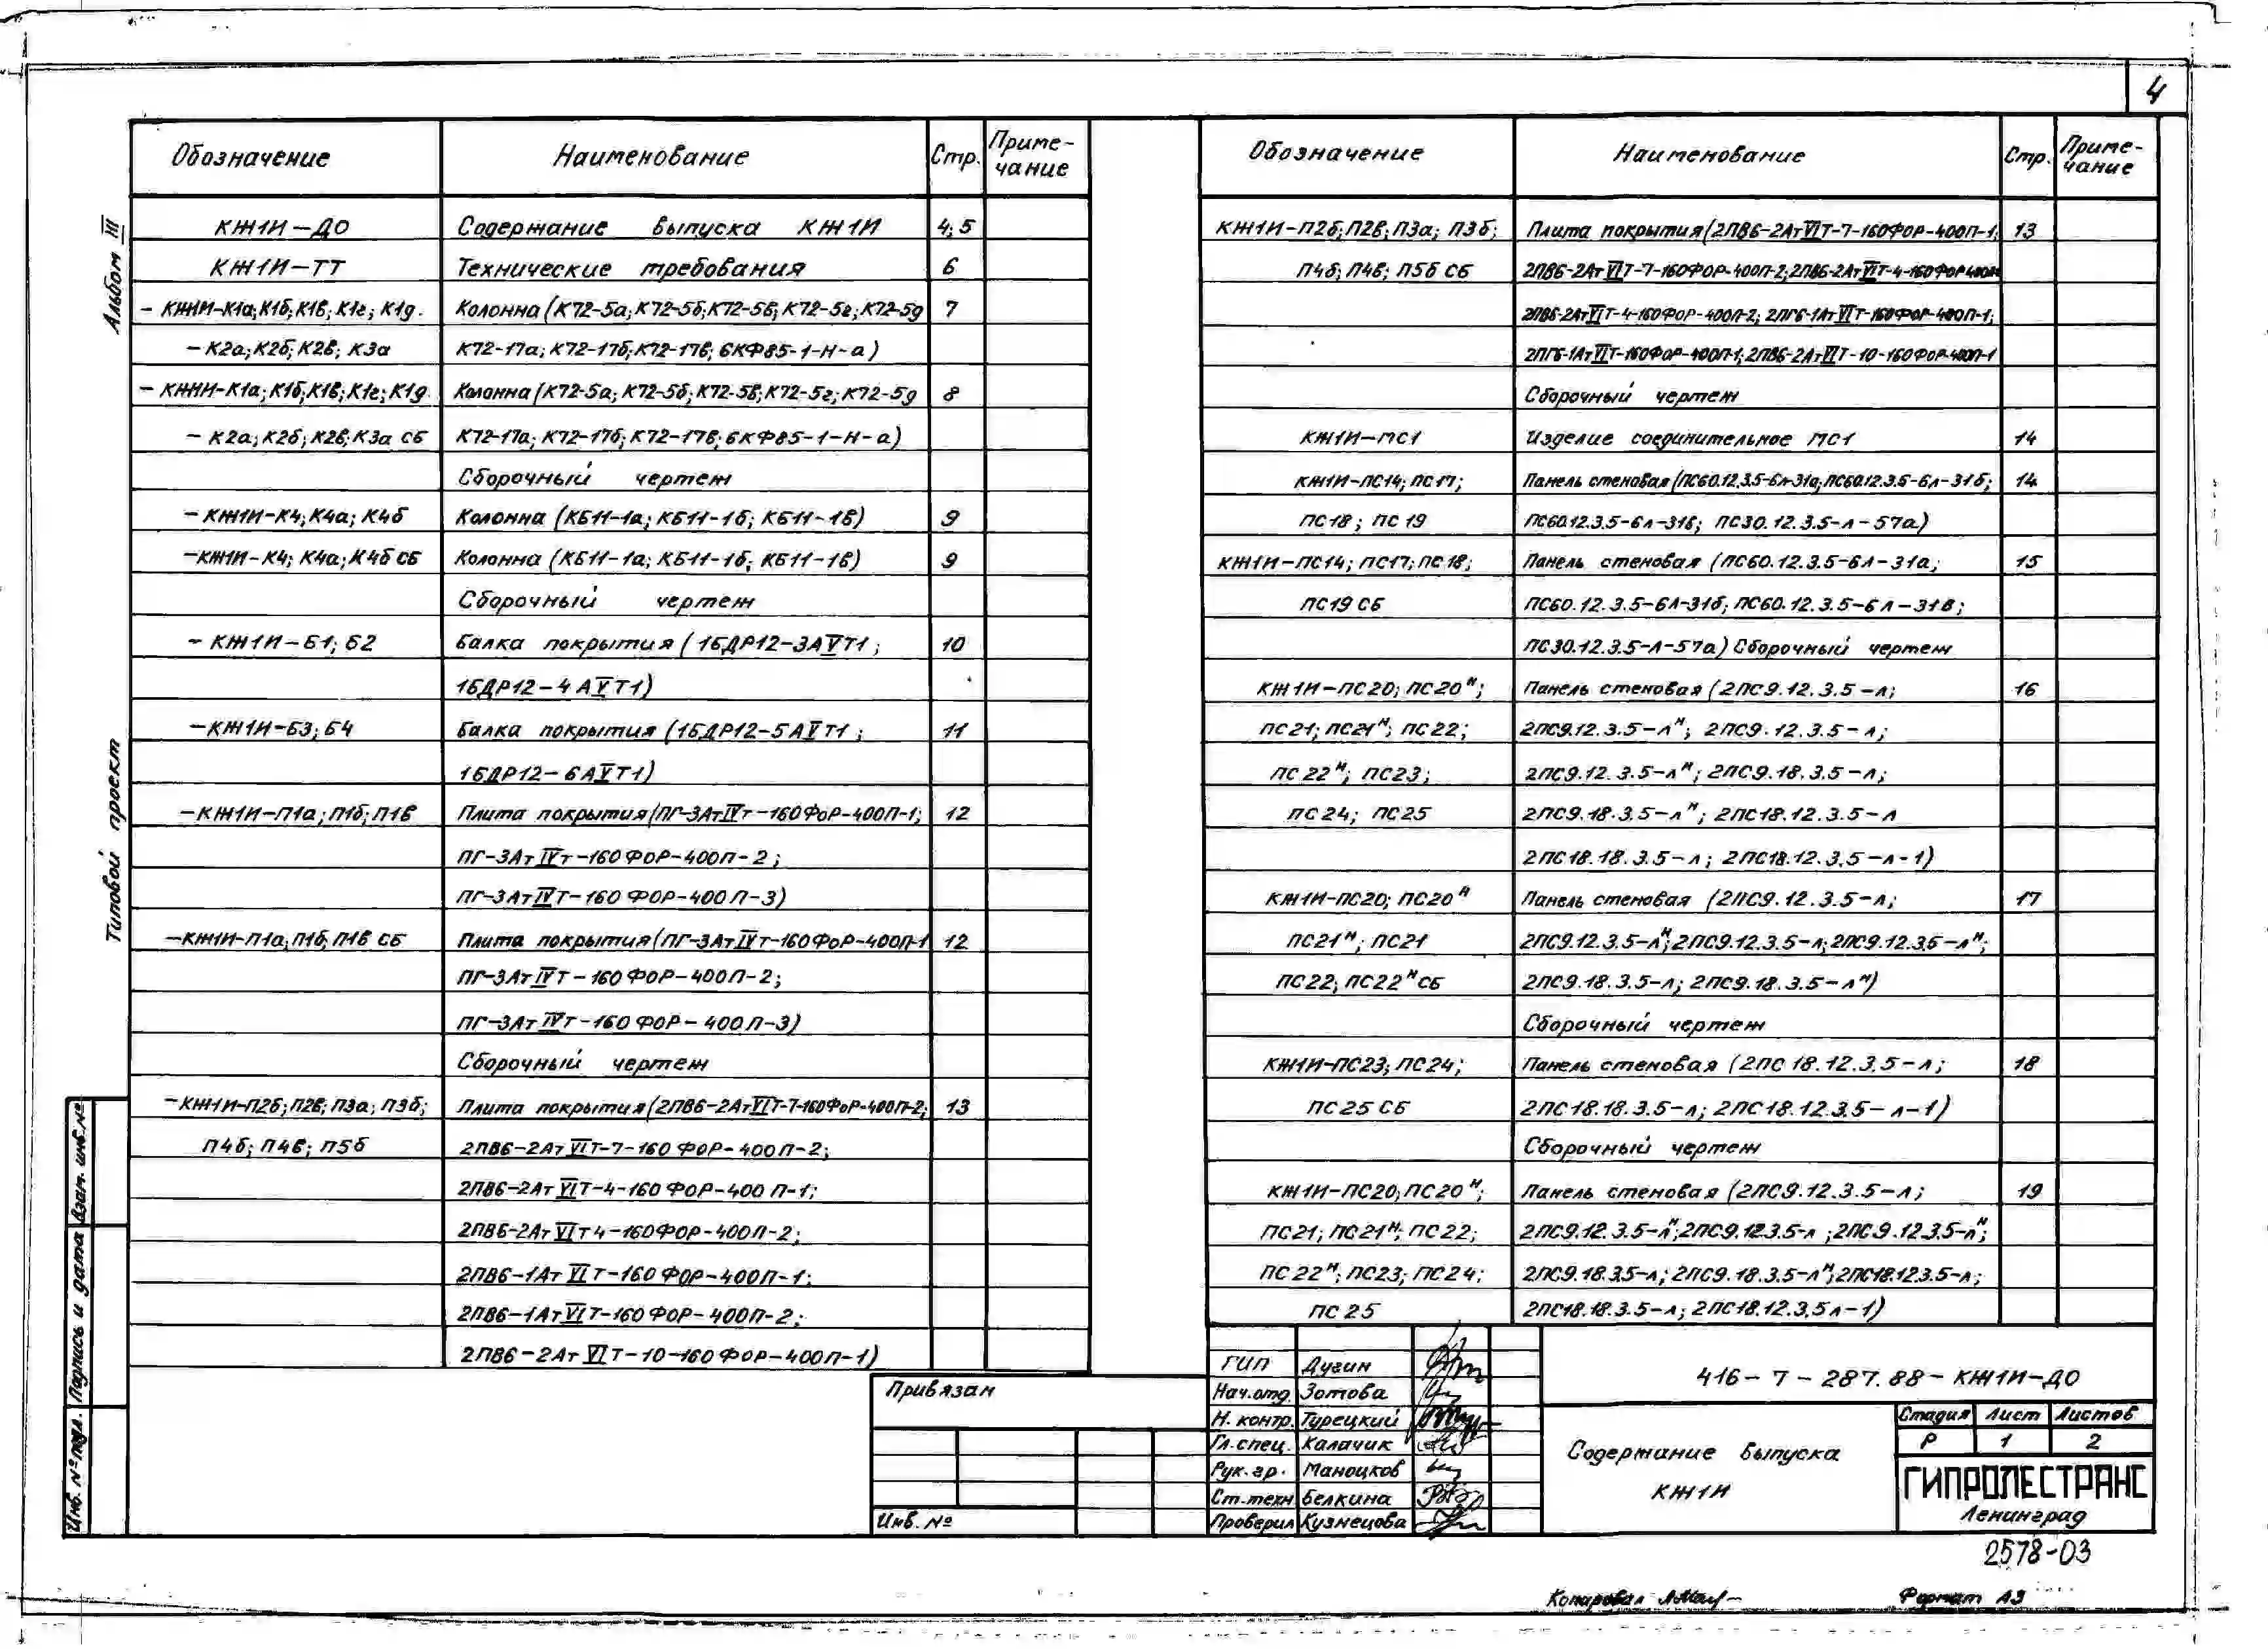 4
Альбом III
Типовой проект
Обозначение Наименование Стр. Приме-
чание
КЖ1И-ДО Содержание выпуска КЖ1И 4;5
КЖ1И-ТТ Технические требования 6
-КЖ1И-К1а;К1б;К1в;К1г;К1д. Колонна (К72-5а;К72-5б;К72-5в;К72-5г;К72-5д 7
-К2а;К2б;К2в; К3а К72-17а;К72-17б;К72-17в;6КФ85-1-Н-а)
-КЖ1И-К1а;К1б;К1в;К1г;К1д. Колонна (К72-5а;К72-5б;К72-5в;К72-5г;К72-5д 8
-К2а;К2б;К2в;К3а СБ К72-17а;К72-17б;К72-17в;6КФ85-1-Н-а)
Сборочный чертеж
-КЖ1И-К4;К4а;К4б Колонна (КБ11-1а;КБ11-1б;КБ11-1в) 9
-КЖ1И-К4;К4а;К4б СБ Колонна (КБ11-1а;КБ11-1б;КБ11-1в) 9
Сборочный чертеж
-КЖ1И-Б1;Б2 Балка покрытия (1БДР12-3АVТ1; 10
1БДР12-4АVТ1)
-КЖ1И-Б3;Б4 Балка покрытия (1БДР12-5АVТ1; 11
1БДР12-6АVТ1)
-КЖ1И-П1а;П1б;П1в Плита покрытия (ПГ-3АтIVт-160ФОР-400П-1; 12
ПГ-3АтIVт-160ФОР-400П-2;
ПГ-3АтIVТ-160ФОР-400П-3)
-КЖ1И-П1а;П1б;П1в СБ Плита покрытия (ПГ-3АтIVТ-160ФОР-400П-1 12
ПГ-3АтIVТ-160ФОР-400П-2;
ПГ-3АтIVТ-160ФОР-400П-3)
Сборочный чертеж
-КЖ1И-П2б;П2в;П3а;П3б; Плита покрытия (2ПВ6-2АтVIТ-7-160ФОР-400П-2; 13
П4б;П4в;П5б 2ПВ6-2АтVIТ-7-160ФОР-400П-2;
2ПВ6-2АтVIТ-4-160ФОР-400П-1;
2ПВ6-2АтVIТ4-160ФОР-400П-2;
2ПВ6-1АтVIТ-160ФОР-400П-1;
2ПВ6-1АтVIТ-160ФОР-400П-2;
2ПВ6-2АтVIТ-10-160ФОР-400П-1)
Обозначение Наименование Стр. Приме-
чание
КЖ1И-П2б;П2в;П3а;П3б; Плита покрытия (2ПВ6-2АтVIТ-7-160ФОР-400П-1; 13
П4б;П4в;П5б СБ 2ПВ6-2АтVIТ-7-160ФОР-400П-2;2ПВ6-2АтVIТ-4-160ФОР400П
2ПВ6-2АтVIТ-4-160ФОР-400П-2;2ПГ6-1АтVIТ-160ФОР-400П-1;
2ПГ6-1АтVIТ-160ФОР-400П-1;2ПВ6-2АтVIТ-10-160ФОР-400П-1
Сборочный чертеж
КЖ1И-МС1 Изделие соединительное МС1 14
КЖ1И-ПС14;ПС17; Панель стеновая (ПС60.12.3.5-6л-31а;ПС60.12.3.5-6л-31б; 14
ПС18;ПС19 ПС60.12.3.5-6л-31в; ПС30.12.3.5-л-57а)
КЖ1И-ПС14;ПС17;ПС18; Панель стеновая (ПС60.12.3.5-6л-31а; 15
ПС19 СБ ПС60.12.3.5-6л-31б;ПС60.12.3.5-6л-31в;
ПС30.12.3.5-л-57а) Сборочный чертеж
КЖ1И-ПС20;ПС20н; Панель стеновая (2ПС9.12.3.5-л; 16
ПС21;ПС21н;ПС22; 2ПС9.12.3.5-лн; 2ПС9.12.3.5-л;
ПС22н;ПС23; 2ПС9.12.3.5-лн;2ПС9.18.3.5-л;
ПС24;ПС25 2ПС9.18.3.5-лн;2ПС18.12.3.5-л
2ПС18.18.3.5-л;2ПС18.12.3.5-л-1)
КЖ1И-ПС20;ПС20н Панель стеновая (2ПС9.12.3.5-л; 17
ПС21н;ПС21 2ПС9.12.3.5-лн;2ПС9.12.3.5-л;2ПС9.12.3.5-лн;
ПС22;ПС22н СБ 2ПС9.18.3.5-л;2ПС9.18.3.5-лн)
Сборочный чертеж
КЖ1И-ПС23;ПС24; Панель стеновая (2ПС18.12.3.5-л; 18
ПС25 СБ 2ПС18.18.3.5-л;2ПС18.12.3.5-л-1)
Сборочный чертеж
КЖ1И-ПС20;ПС20н; Панель стеновая (2ПС9.12.3.5-л; 19
ПС21;ПС21н;ПС22; 2ПС9.12.3.5-лн;2ПС9.12.3.5-л;2ПС9.12.3.5-лн;
ПС22н;ПС23;ПС24; 2ПС9.18.3.5-л;2ПС9.18.3.5-лн;2ПС18.12.3.5-л;
ПС25 2ПС18.18.3.5-л;2ПС18.12.3.5л-1)
Взам. инв.№
Подпись и дата
Инв. № подл.
Привязан
Инв. №
ГИП Дугин
Нач.отд. Зотова
Н. контр. Турецкий
Гл.спец. Калачик
Рук.гр. Маноцков
Ст.техн Белкина
Проверил Кузнецова
416-7-287.88-КЖ1И-ДО
Содержание выпуска
КЖ1И
Стадия Лист Листов
Р 1 2
ГИПРОЛЕСТРАНС
Ленинград
2578-03
Копировал
Формат А3